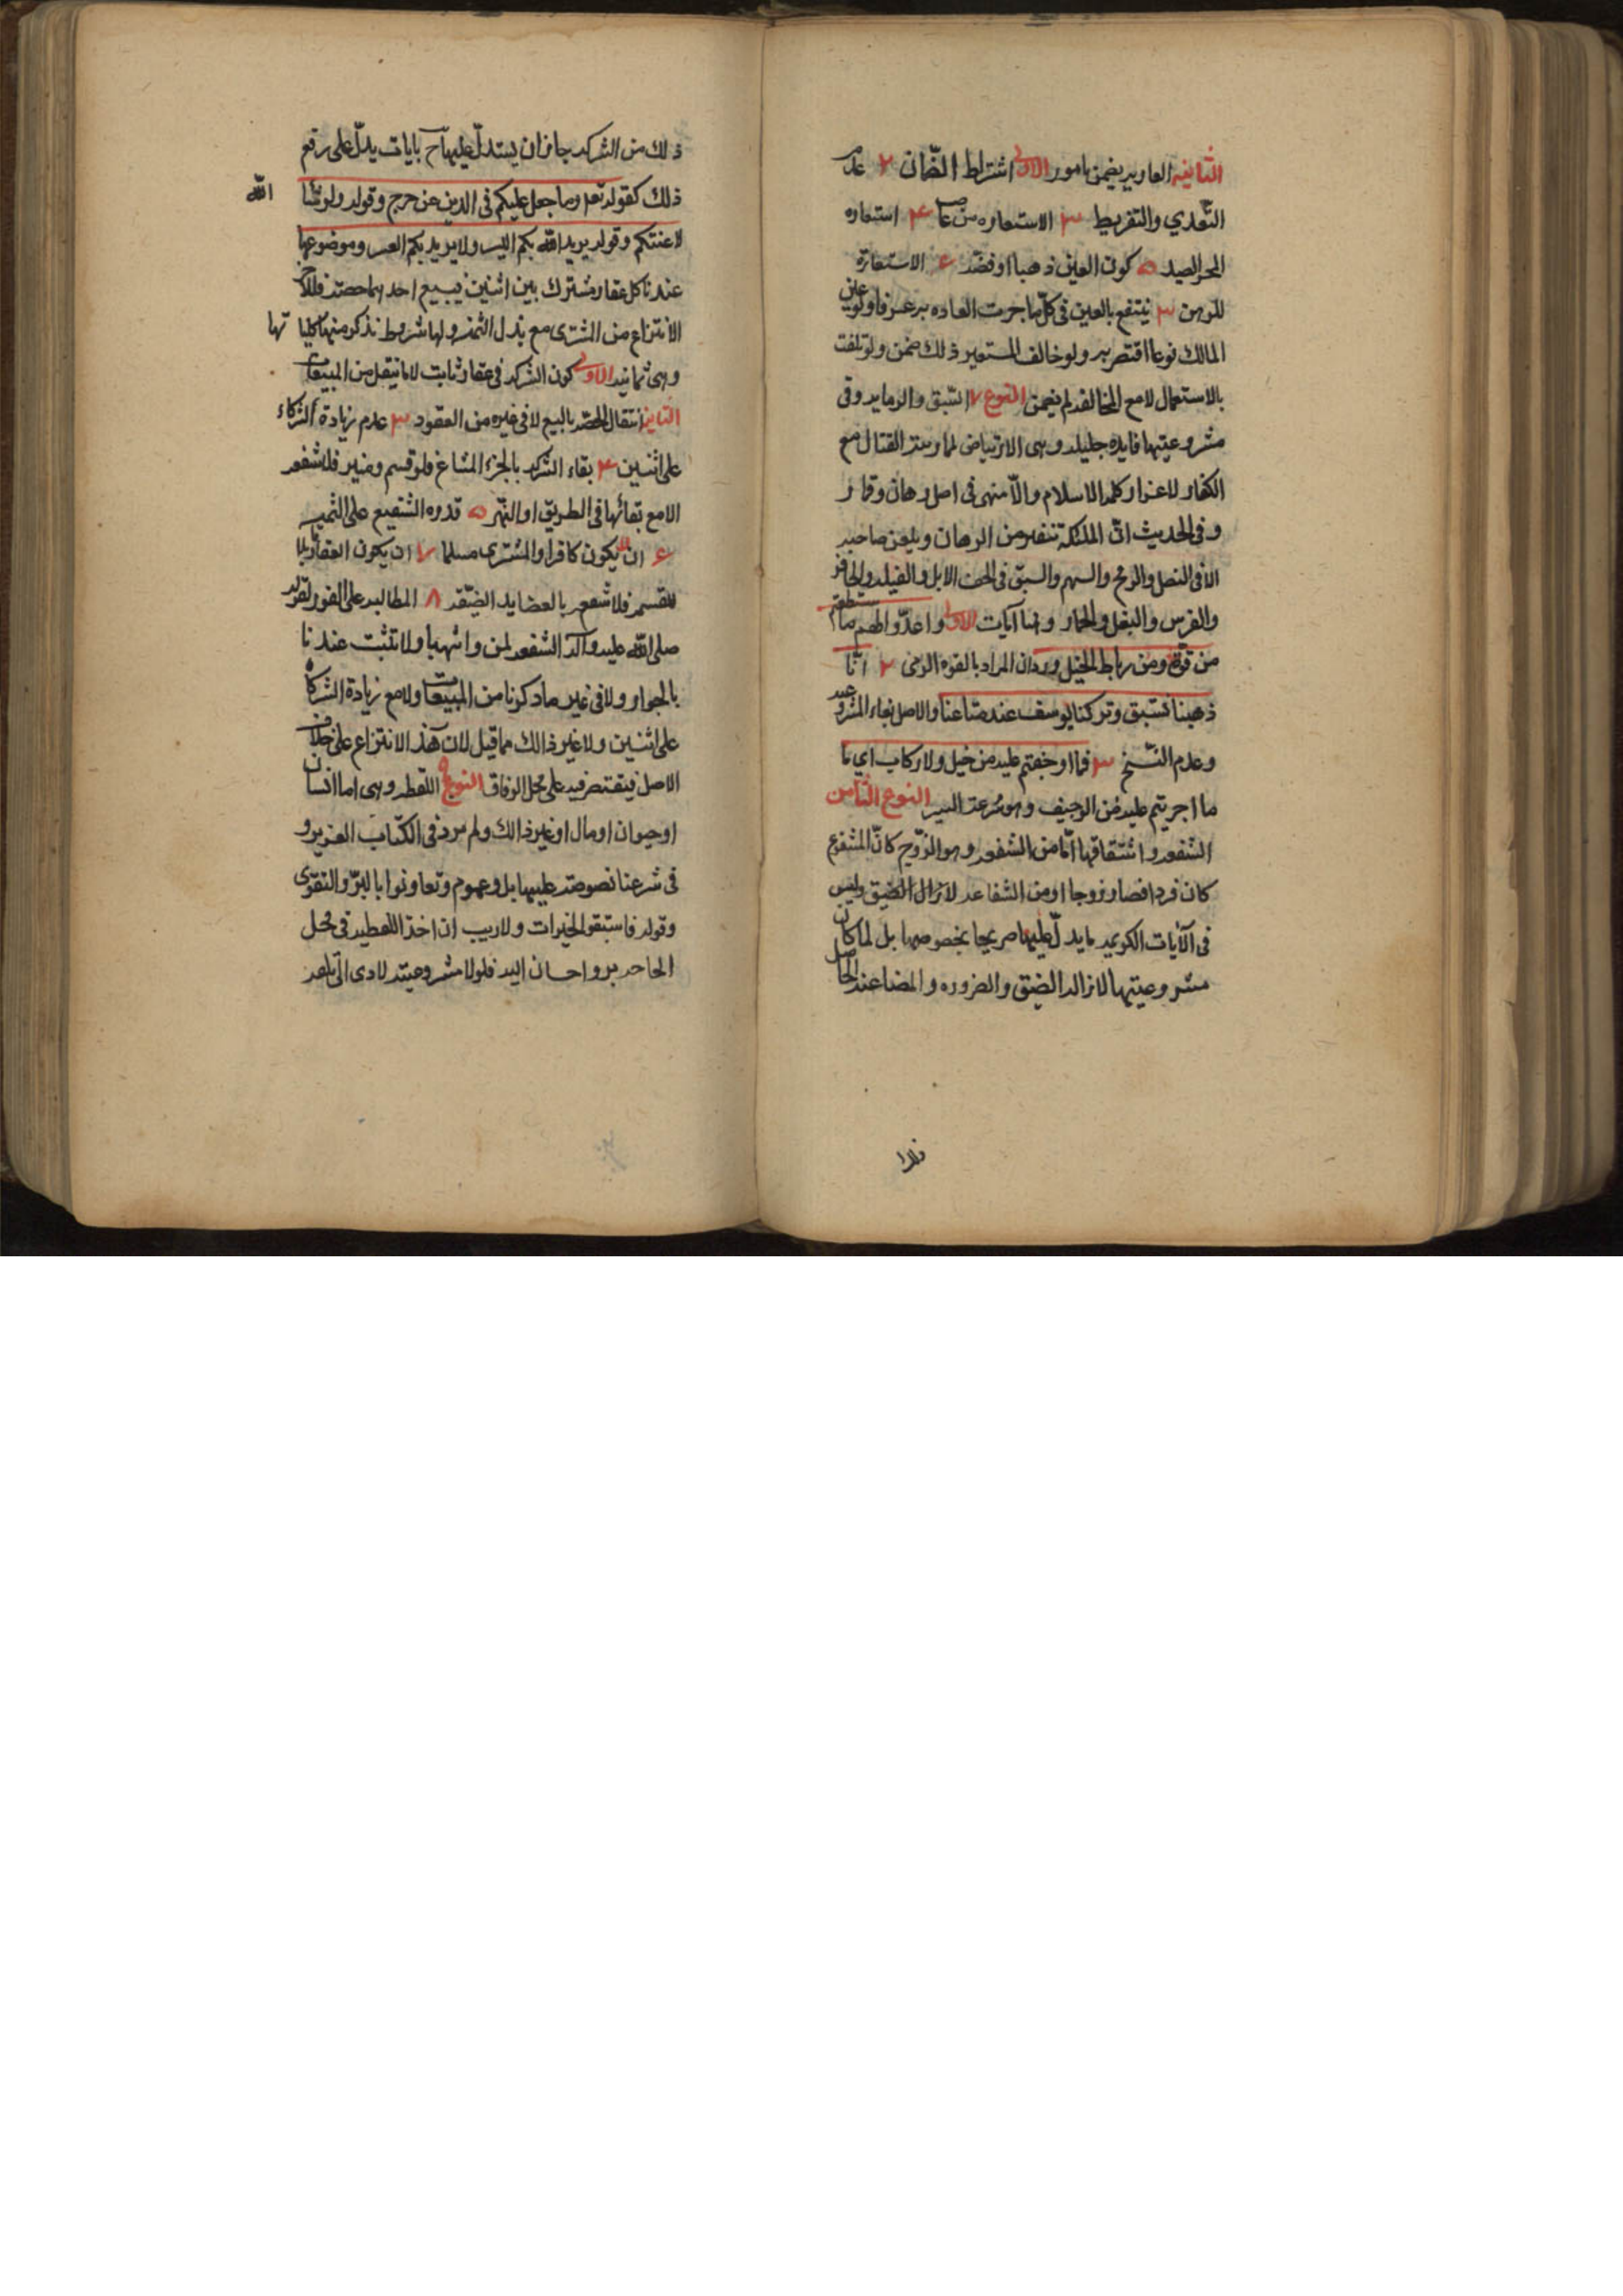 الثانية العارية يضمن بامور الاولى اشتراط الضمان ٢ عدم
التعدي والتفريط ٣ الاستعاره من غاصب ٤ استعاره
المحرالصيد ٥ كون العين ذهبا او فضه ٦ الاستعارة
للرهن ٣ ينتفع بالعين فى كل ما جرت العاده به عرفا ولو عين
المالك نوعا اقتصر به ولو خالف المستعير ذلك ضمن ولو تلفت
بالاستعمال لا مع المخالفه لم يضمن النوع ٧ السّبق والرمايه وفى
مشروعيتها فايده جليله وهى الارتياض لممارسة القتال مع
الكفار لاعزاز كلمه الاسلام والّا منهى فى اصل رهان وقمار
وفى الحديث انّ الملئكة تنفر من الرهان ويلعن صاحبه
الا فى النصل والرمح والسهم والسبق فى الخف الابل والفيله والحافر
والفرس والبغل والحمار وهنا آيات الاولى واعدّوا لهم ما استطعتم
من قوة ومن رباط الخيل ورد ان المراد بالقوه الرمى ٢ انّا
ذهبنا نستبق وتركنا يوسف عند متاعنا والاصل بقاء المشروعيه
وعدم النسخ ٣ فما اوجفتم عليه من خيل ولا ركاب اى ما
ما اجريتم عليه من الوجيف وهو سرعة السير النوع الثامن
الشفعه واشتقاقها امّا من الشفعه وهو الزّوج كانّ المشفوع
كان فردا فصار زوجا او من الشفاعه لازال الضيق وليس
فى الآيات الكريمه ما يدلّ عليها صريحا بخصوصها بل لما كان
مشروعيتها لازالة الضيق والضروره والمضا عند الحاصل
فلا
ذلك من الشركه جاز ان يستدلّ عليها ح بايات يدلّ على رفع
ذلك كقوله تعم وما جعل عليكم فى الدين من حرج وقوله ولو شاء الله
لاعنتكم وقوله يريد الله بكم اليسر ولا يريد بكم العسر وموضوعها
عندنا كل عقار مشترك بين اثنين فيبيع احدهما حصته فللآخر
الانتزاع من المشترى مع بذل الثمن ولها شروط نذكر منها كلياتها
وهى ثمانيه الاولى كون الشركه فى عقار ثابت لا ما ينتقل من المبيعات
الثانيه انتقال الحصّه بالبيع لا فى غيره من العقود ٣ عدم زيادة الشركاء
على اثنين ٤ بقاء الشركه بالجزء المشاع فلو قسم وميز فلا شفعه
الا مع بقائها فى الطريق او النهر ٥ قدره الشفيع على الثمن
٦ ان لا يكون كافرا والمشترى مسلما ٧ ان يكون العقار قابلا
للقسمه فلا شفعه بالعضايد الضيّقه ٨ المطالبه على الفور لقوله
صلى الله عليه وآله الشفعه لمن واثبها ولا تثبت عندنا
بالجوار ولا فى غير ما ذكرنا من المبيعات ولا مع زيادة الشركاء
على اثنين ولا غير ذالك مما قيل لان هذ الانتزاع على خلاف
الاصل فيقتصر فيه على محل الوفاق النوع ٩ اللقطه وهى اما انسان
او حيوان او مال او غير ذالك ولم يرد فى الكتاب العزيز و
فى شرعنا نصوصه عليها بل وعموم وتعاونوا بالبرّ والتقوى
وقوله فاستبقوا الخيرات ولا ريب ان اخذ اللقطه فى محل
الحاجه بر واحسان اليه فلولا مشروعيته لادى الى تلفه